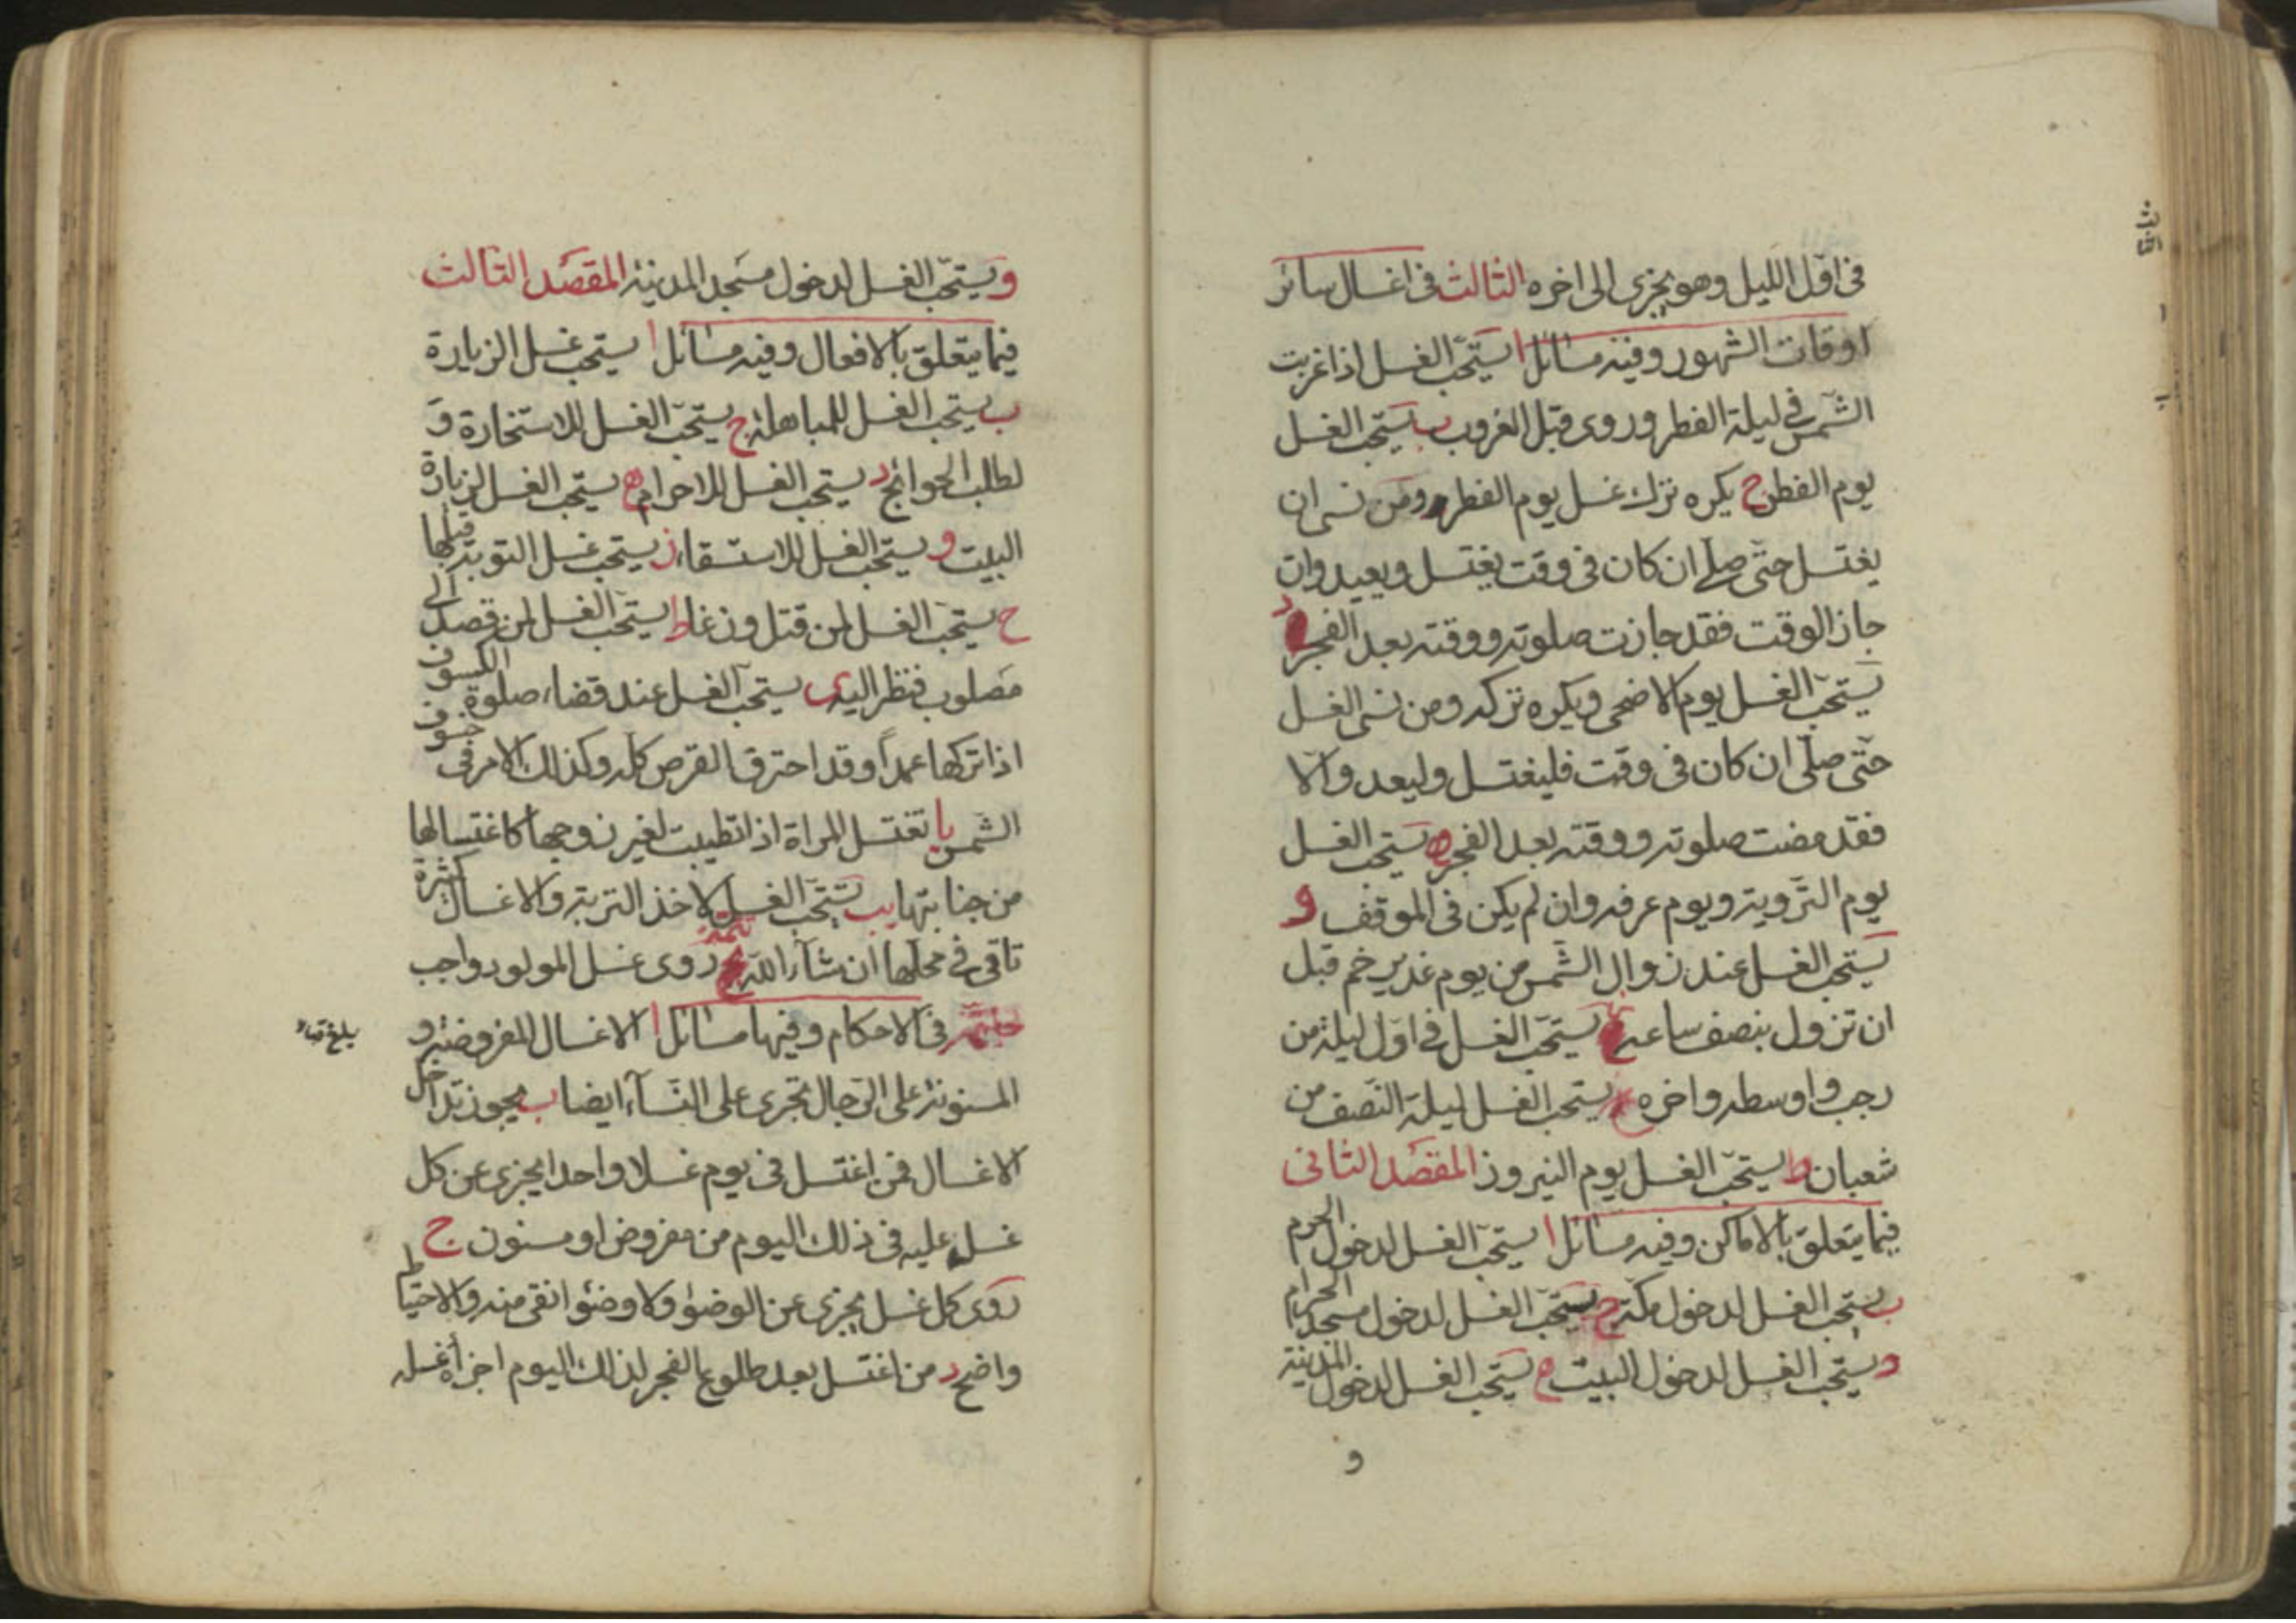 فى اوّل اللّيل وهو يجزى الى اخره الثالث فى اغسال سائر
اوقات الشهور وفيه مسائل ا يستحّب الغسل اذا غربت
الشّمس فى ليلة الفطر وروى قبل الغروب ب يستحب الغسل
يوم الفطر ج يكره ترك غسل يوم الفطر ومن نسى ان
يغتسل حتّى صلّى ان كان فى وقت يغتسل ويعيد وان
جاز الوقت فقد جازت صلوته ووقته بعد الفجر د
يستحّب الغسل يوم الاضحى ويكره تركه ومن نسى الغسل
حتّى صلّى ان كان فى وقت فليغتسل وليعد والّا
فقد مضت صلوته ووقته بعد الفجر ه يستحب الغسل
يوم التّروية ويوم عرفه وان لم يكن فى الموقف و
يستحب الغسل عند زوال الشّمس من يوم غدير خم قبل
ان تزول بنصف ساعه يستحّب الغسل فى اوّل ليلة من
رجب واوسطه واخره يستحب الغسل ليلة النّصف من
شعبان ط يستحّب الغسل يوم النيروز المقصد الثانى
فيما يتعلق بالاماكن وفيه مسائل ا يستحّب الغسل لدخول الحرم
ب يستحب الغسل لدخول مكّة ج يستحّب الغسل لدخول مسجد الحرام
د يستحب الغسل لدخول البيت ه يستحب الغسل لدخول المدينة
و
و يستحّب الغسل لدخول مسجد المدينة المقصد الثالث
فيما يتعلق بالافعال وفيه مسائل ا يستحب غسل الزيارة
ب يستحب الغسل للمباهلة ج يستحّب الغسل للاستخارة و
لطلب الحوائج د يستحب الغسل للاحرام ه يستحب الغسل لزيارة
البيت و يستحب الغسل للاستسقاء ز يستحب غسل التوبة قبلها
ح يستحّب الغسل لمن قتل وزغا ط يستحّب الغسل لمن قصد الى
مصلوب فنظر اليه ى يستحب الغسل عند قضاء صلوة الكسوف
اذا تركها عمداً وقد احترق القرص كله وكذلك الامر فى خسوف
الشّمس يا تغتسل المراة اذا تطيبت لغير زوجها كاغتسالها
من جنابتها يب يستحّب الغسل لاخذ التربة والاغسال كثيرة
تاتى فى محلّها ان شآء اللّه تتمة روى غسل المولود واجب
خاتمة فى الاحكام وفيها مسائل ا الاغسال المفروضة و
المسنونة على الرّجال تجرى على النّسآء ايضا ب يجوز تداخل
الاغسال فمن اغتسل فى يوم غسلا واحدا يجزى عن كل
غسل عليه فى ذلك اليوم من مفروض او مسنون ج
روى كل غسل يجزى عن الوضوء ولا وضوء انقى منه والاحتياط
واضح د من اغتسل بعد طلوع الفجر لذلك اليوم اجزأه غسله